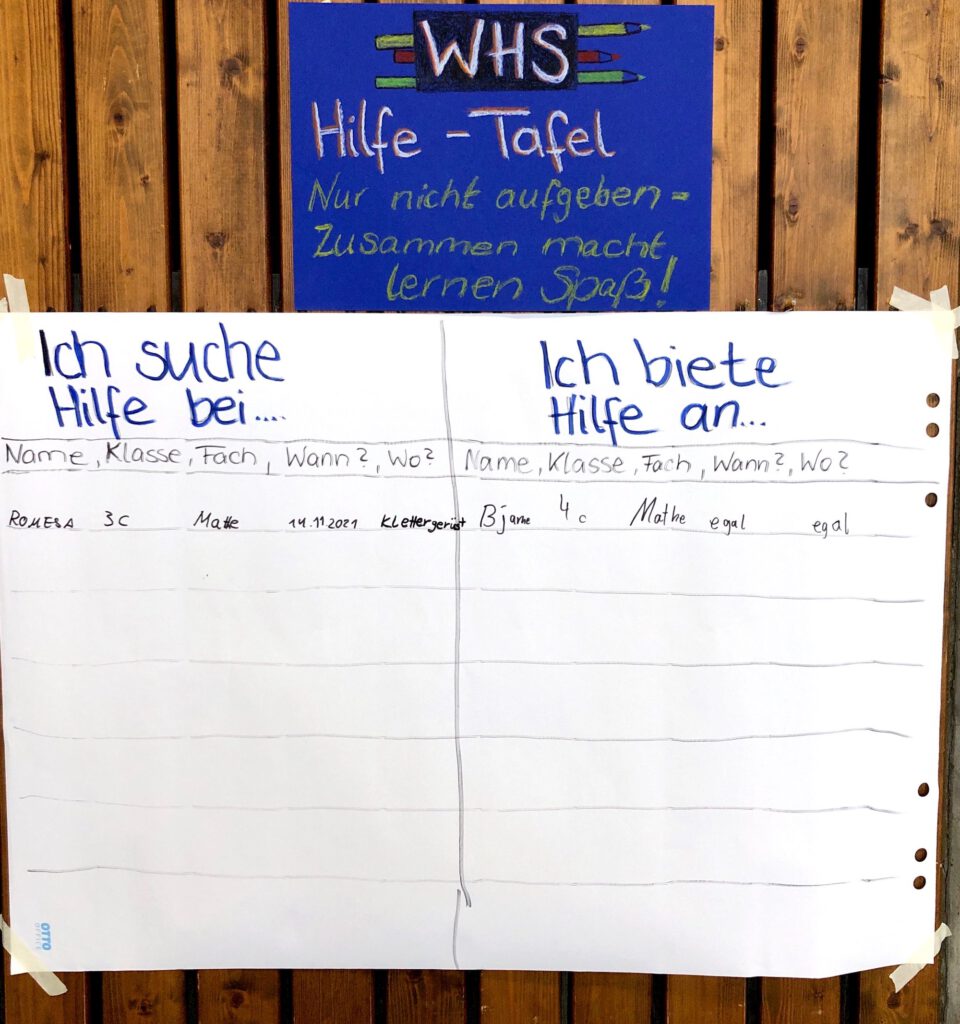 WHS
Hilfe - Tafel
Nur nicht aufgeben -
Zusammen macht
lernen Spaß!
Ich suche
Hilfe bei....
Name, Klasse, Fach, Wann?, Wo?
ROMESA 3c Matte 14.11.2021 Klettergerüst
Ich biete
Hilfe an...
Name, Klasse, Fach, Wann?, Wo?
Bjarne 4c Mathe egal egal
OTTO
OFFICE